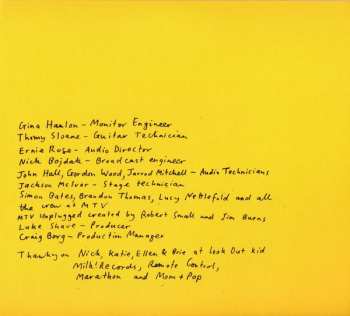 Gina Hanlon – Monitor Engineer
Thomy Sloane – Guitar Technician
Ernie Rose – Audio Director
Nick Bojdak – Broadcast engineer
John Hall, Gordon Wood, Jarrod Mitchell – Audio Technicians
Jackson McIvor – Stage technician
Simon Bates, Brandon Thomas, Lucy Nettlefold and all
the crew at MTV
MTV Unplugged created by Robert Small and Jim Burns
Luke Shave – Producer
Craig Borg – Production Manager
Thankyou Nick, Katie, Ellen & Brie at Look Out Kid
Milk! Records, Remote Control,
Marathon and Mom + Pop